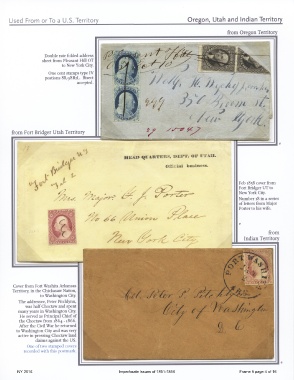 Used From or To a U.S. Territory
Oregon, Utah and Indian Territory
from Oregon Territory
Double rate folded address
sheet from Pleasant Hill OT
to New York City.
One cent stamps type IV
New York
from Fort Bridger Utah Territory
Fort Bridger U T
Feb 2
HEAD-QUARTERS, DEPT. OF UTAH.
Official business.
Mrs Major F. J. Porter
No 66 Union Place
New York City
Feb 1858 cover from
Fort Bridger UT to
New York City.
Number 18 in a series
of letters from Major
Porter to his wife.
from
Indian Territory
Cover from Fort Washita Arkansas
Territory, in the Chickasaw Nation,
to Washington City
The addressee, Peter Pitchlynn,
was half Choctaw and spent
many years in Washington City
He served as Principal Chief of
the Choctaw from 1864-1866.
After the Civil War he returned
to Washington and was very
active in pressing Choctaw land
claims against the US.
One of two stamped covers
recorded with this postmark.
City of Washington
D. C.
NY 2016
Imperforate Issues of 1851-1856